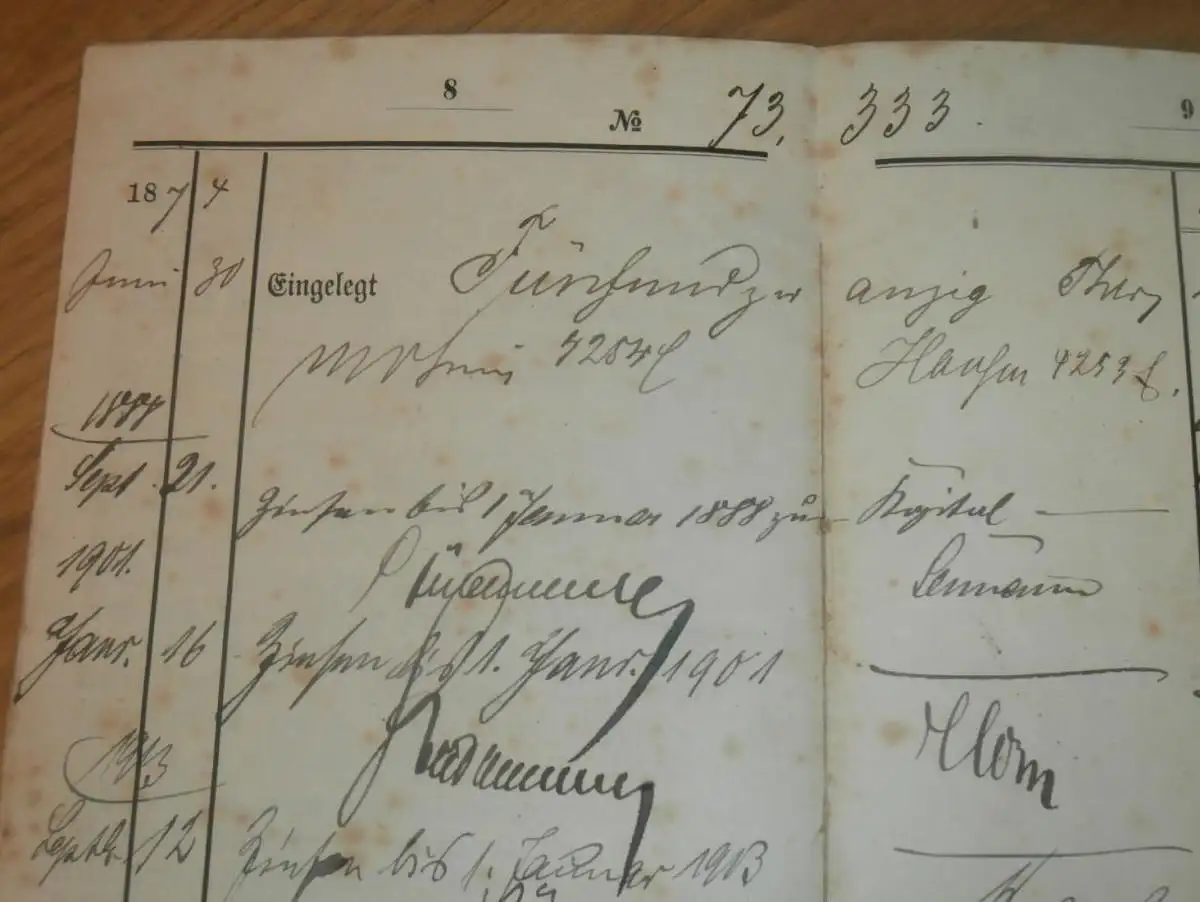 8
9
№ 73,333.
1874
Juni 30 Eingelegt Fünfundzwanzig Thlr
4254 f Hansen 4253 f.
1888
Sept. 21. Zinsen bis 1 Januar 1888 zum Kapital
1901.
Janr. 16 Zinsen bis 1. Janr. 1901
Horn
1913
Septb. 12 Zinsen bis 1. Januar 1913